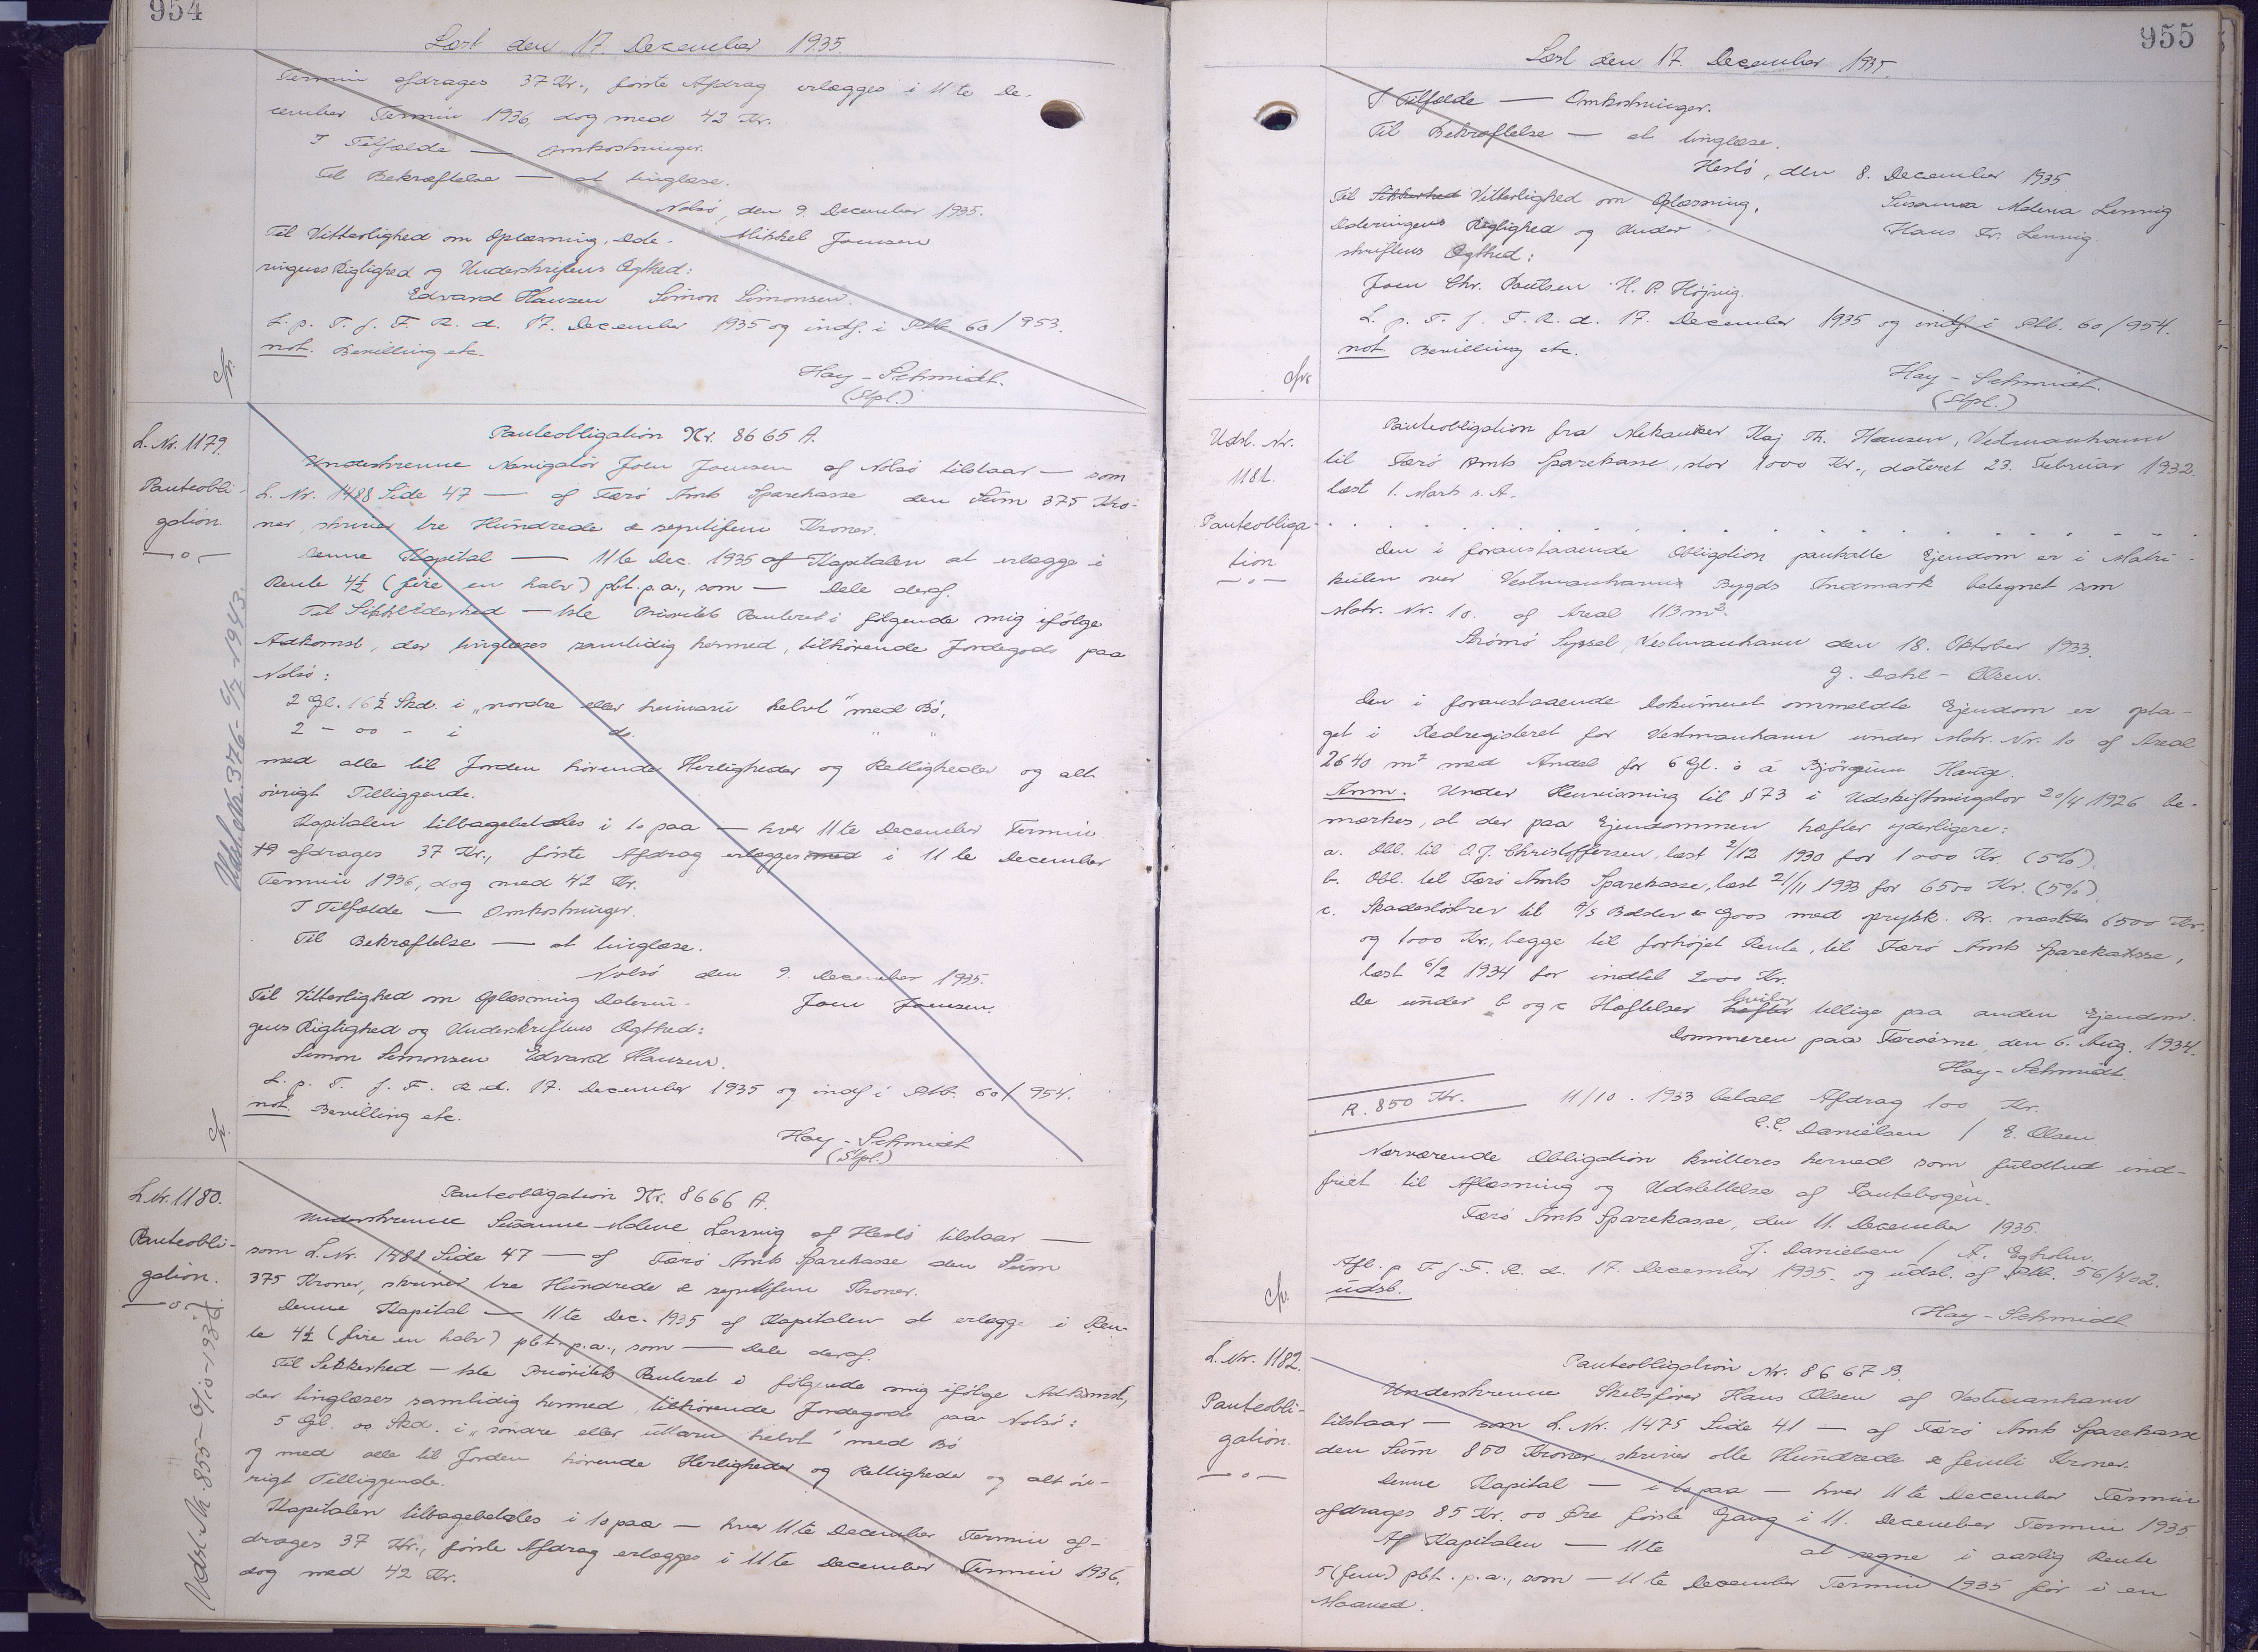 954
Læst den 17. December 1935.
Termin afdrages 37 Kr., første Afdrag erlægges i 11te De-
cember Termin 1936, dog med 42 Kr.
I Tilfælde — Omkostninger.
Til Bekræftelse — at tinglæse.
Nolsö, den 9. December 1935.
Til Vitterlighed om Oplæsning, Date- Mikkel Joensen
ringens Rigtighed og Underskriftens Ægthed:
Edvard Hansen Simon Simonsen.
L. p. T. f. F. R. d. 17. December 1935 og indf. i Ptb. 60/953.
not. Bevilling etc.
Hay-Schmidt.
(Stpl.)
cfr.
L. Nr. 1179.
Panteobli-
gation.
—o—
Udsl. 376 - 6/7 - 1943.
Panteobligation Nr. 8665 A.
Underskrevne Navigatör Joen Joensen af Nolsö tilstaar — som
L. Nr. 1488 Side 47 — af Færö Amts Sparekasse den Sum 375 Kro-
ner, skriver tre Hundrede & syvtifem Kroner.
Denne Kapital — 11te Dec. 1935 af Kapitalen at erlægge i
Rente 4½ (fire en halv) pCt. p.a., som — Dele deraf.
Til Sikkerhed — 1ste Prioritets Panteret i følgende mig ifölge
Adkomst, der tinglæses samtidig hermed, tilhörende Jordegods paa
Nolsö:
2 Gl. 16½ Skd. i „nordre eller heimaru helvt" med Bö,
2 - 00 - i do. " "
med alle til Jorden hörende Herligheder og Rettigheder og alt
övrigt Tilliggende.
Kapitalen tilbagebetales i 10 paa — hver 11te December Termin
+9 afdrages 37 Kr., förste Afdrag erlægges med i 11te December
Termin 1936, dog med 42 Kr.
I Tilfælde — Omkostninger.
Til Bekræftelse — at tinglæse.
Nolsö den 9. December 1935.
Til Vitterlighed om Oplæsning Daterin- Joen Joensen.
gens Rigtighed og Underskriftens Ægthed:
Simon Simonsen Edvard Hansen.
L. p. T. f. F. R. d. 17. December 1935 og indf. i Ptb. 60/954.
not. Bevilling etc.
Hay-Schmidt
(Stpl.)
cfr.
L. Nr. 1180.
Panteobli-
gation.
—o—
Udsl. Nr. 855 - 6/10 - 1936.
Panteobligation Nr. 8666 A.
Underskrevne Susanne Malene Lennig af Hestö tilstaar —
som L. Nr. 1488 Side 47 — af Færö Amts Sparekasse den Sum
375 Kroner, skriver tre Hundrede & syvtifem Kroner.
Denne Kapital — 11te Dec. 1935 af Kapitalen at erlægge i Ren-
te 4½ (fire en halv) pCt. p.a., som — Dele deraf.
Til Sikkerhed — 1ste Prioritets Panteret i følgende mig ifölge Adkomst,
der tinglæses samtidig hermed, tilhörende Jordegods paa Nolsö:
5 Gl. 00 Skd. i „söndre eller uttaru helvt" med Bö
og med alle til Jorden hörende Herligheder og Rettigheder og alt öv-
rigt Tilliggende.
Kapitalen tilbagebetales i 10 paa — hver 11te December Termin af-
drages 37 Kr., förste Afdrag erlægges i 11te December Termin 1936,
dog med 42 Kr.
955
Læst den 17. December 1935.
I Tilfælde — Omkostninger.
Til Bekræftelse — at tinglæse.
Hestö, den 8. December 1935
Til Sikkerhed Vitterlighed om Oplæsning, Susanna Malena Lennig
Dateringens Rigtighed og Under- Hans Fr. Lennig.
skriftens Ægthed:
Joen Chr. Poulsen H. P. Höjvig.
L. p. T. f. F. R. d. 17. December 1935 og indf. i Ptb. 60/954.
not. Bevilling etc.
Hay-Schmidt.
(Stpl.)
cfr.
Udsl. Nr.
1181.
Panteobliga-
tion
—o—
Panteobligation fra Mekaniker Kaj Th. Hansen, Vestmanhavn
til Færö Amts Sparekasse, stor 1000 Kr., dateret 23. Februar 1932.
læst 1. Marts s. A.
Den i foranstaaende Obligation pantsatte Ejendom er i Matri-
kulen over Vestmanhavns Bygds Indmark betegnet som
Matr. Nr. 10. af Areal 113 m².
Strömö Syssel, Vestmanhavn den 18. Oktober 1933.
G. Dahl-Olsen.
Den i foranstaaende Dokument ommeldte Ejendom er opta-
get i Realregisteret for Vestmanhavn under Matr. Nr. 10 af Areal
2640 m² med Andel for 6 Gl. i á Björgum Hauge.
Anm. Under Henvisning til § 73 i Udskiftningslov 20/4 1926 be-
mærkes, at der paa Ejendommen hæfter yderligere:
a. Obl. til O. J. Christoffersen, læst 2/12 1930 for 1000 Kr. (5%).
b. Obl. til Færö Amts Sparekasse, læst 21/11 1933 for 6500 Kr. (5%)
c. Skadeslösbrev til A/S Balslev & Goos med oprykk. Pr. næst 6500 Kr.
og 1000 Kr., begge til forhöjet Rente, til Færö Amts Sparekasse,
læst 6/2 1934 for indtil 2000 Kr.
De under b og c Hæftelser hæfter hviler tillige paa anden Ejendom.
Dommeren paa Færöerne, den 6. Aug. 1934.
Hay-Schmidt.
R. 850 Kr. 11/10. 1933 betalt Afdrag 100 Kr.
C.C. Danielsen / E. Olsen.
Nærværende Obligation kvitteres herved som fuldtud ind-
friet til Aflæsning og Udslettelse af Pantebogen.
Færö Amts Sparekasse, den 11. December 1935.
J. Danielsen / A. Egholm.
Afl. p. T. f. F. R. d. 17. December 1935. og udsl. af Ptb. 56/402.
udsl.
Hay-Schmidt
cfr.
L. Nr. 1182.
Panteobli-
gation.
—o—
Panteobligation Nr. 8667 B.
Underskrevne Skibsförer Hans Olsen af Vestmanhavn
tilstaar — som L. Nr. 1475 Side 41 — af Færö Amts Sparekasse
den Sum 850 Kroner, skriver otte Hundrede & femti Kroner.
Denne Kapital — i 10 paa — hver 11te December Termin
afdrages 85 Kr. 00 Øre förste Gang i 11. December Termin 1935.
Af Kapitalen — 11te at regne i aarlig Rente
5 (fem) pCt. p.a., som — 11te December Termin 1935 for i en
Maaned.